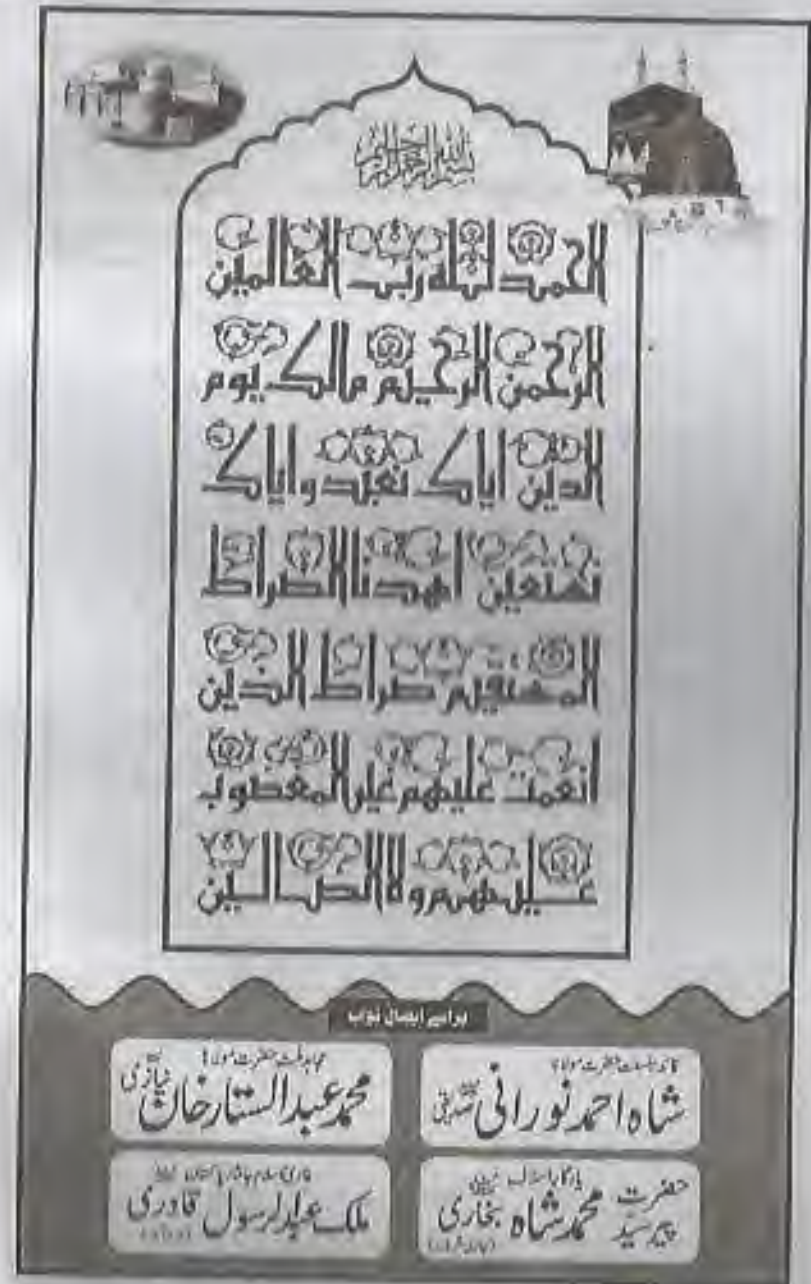 بسم الله الرحمن الرحيم
الحمد لله رب العالمين
الرحمن الرحيم مالك يوم
الدين اياك نعبد واياك
نستعين اهدنا الصراط
المستقيم صراط الذين
انعمت عليهم غير المغضوب
عليهم ولا الضالين
برائے ایصال ثواب
قائد اہلسنت حضرت مولانا
شاہ احمد نورانی صدیقی
مجاہد ملت حضرت مولانا
محمد عبدالستار خان نیازی
حضرت پیر سید محمد شاہ بخاری
ملک عبدالرسول قادری